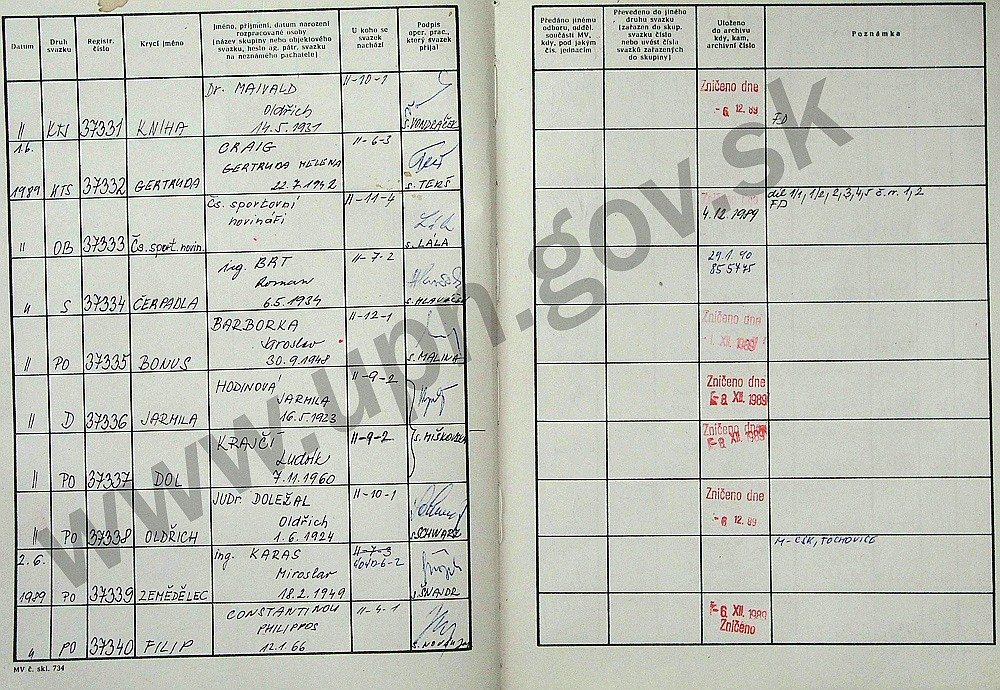 Datum
Druh svazku
Registr. číslo
Krycí jméno
Jméno, příjmení, datum narození
rozpracované osoby
(název skupiny nebo objektového
svazku, heslo ag. pátr. svazku
na neznámého pachatele)
U koho se
svazek
nachází
Podpis
oper. prac.,
který svazek
přijal
Předáno jinému
odboru, odděl.
součásti MV,
kdy, pod jakým
čís. jednacím
Převedeno do jiného
druhu svazku
(zařazen do skup.
svazku číslo
nebo uvést čísla
svazků zařazených
do skupiny)
Uloženo
do archivu
kdy, kam,
archivní číslo
Poznámka
Dr. MAIVALD
Oldřich
14.5.1931
II-10-1
s. VONDRÁČEK
Zničeno dne
-6. 12. 89
FD
" KTS 37331 KNIHA
1.6.
1989 KTS 37332 GERTRUDA
CRAIG
GERTRUDA HELENA
22.7.1942
II-6-3
s. TERŠ
" OB 37333 Čs. sport. novin.
Čs. sportovní
novináři
II-11-4
s. LÁLA
4.12.1989
díl 1/1, 1/2, 2,3,4,5 č.m. 1,2
FD
" S 37334 ČERPADLA
ing. BRT
Roman
6.5.1934
II-7-2
s. HLAVÁČEK
29.1.90
855475
" PO 37335 BONUS
BARBORKA
Jaroslav
30.9.1948
II-12-1
s. MALINA
Zničeno dne
-1. XII. 1989
" D 37336 JARMILA
HODINOVÁ
JARMILA
16.5.1923
II-9-2
Zničeno dne
-8. XII. 1989
" PO 37337 DOL
KRAJČÍ
Ludvík
7.11.1960
II-9-2
Zničeno dne
-8. XII. 1989
" PO 37338 OLDŘICH
JUDr. DOLEŽAL
Oldřich
1.6.1924
II-10-1
s. SCHWARZ
Zničeno dne
-6. 12. 89
2.6.
1989 PO 37339 ZEMĚDĚLEC
Ing. KARAS
Miroslav
18.2.1949
II-7-3
s. ŠNAJDR
" PO 37340 FILIP
CONSTANTINOU
PHILIPPOS
12.1.66
II-4-1
-6. XII. 1989
Zničeno
MV č. skl. 734
www.upn.gov.sk